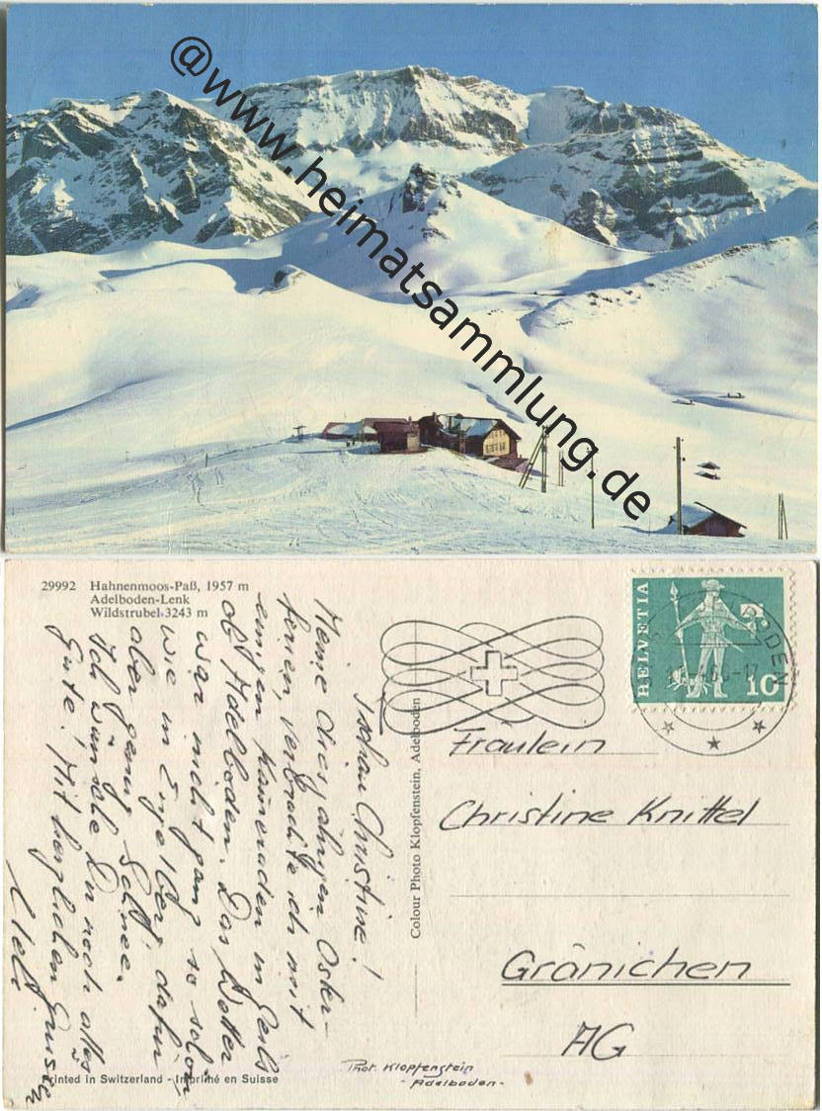 @www.heimatsammlung.de
29992 Hahnenmoos-Paß, 1957 m
Adelboden-Lenk
Wildstrubel 3243 m
Tschau Christine!
Meine diesjährigen Oster-
ferien, verbrachte ich mit
einigen Kameraden in Geils
ob Adelboden. Das Wetter
war nicht ganz so schön
wie in Engelberg dafür
aber genug Schnee.
Ich wünsche Dir noch alles
Gute! Mit herzlichen Grüssen
Ueli
Printed in Switzerland - Imprimé en Suisse
Colour Photo Klopfenstein, Adelboden
Phot. Klopfenstein
- Adelboden -
HELVETIA
10
Fräulein
Christine Knittel
Gränichen
AG